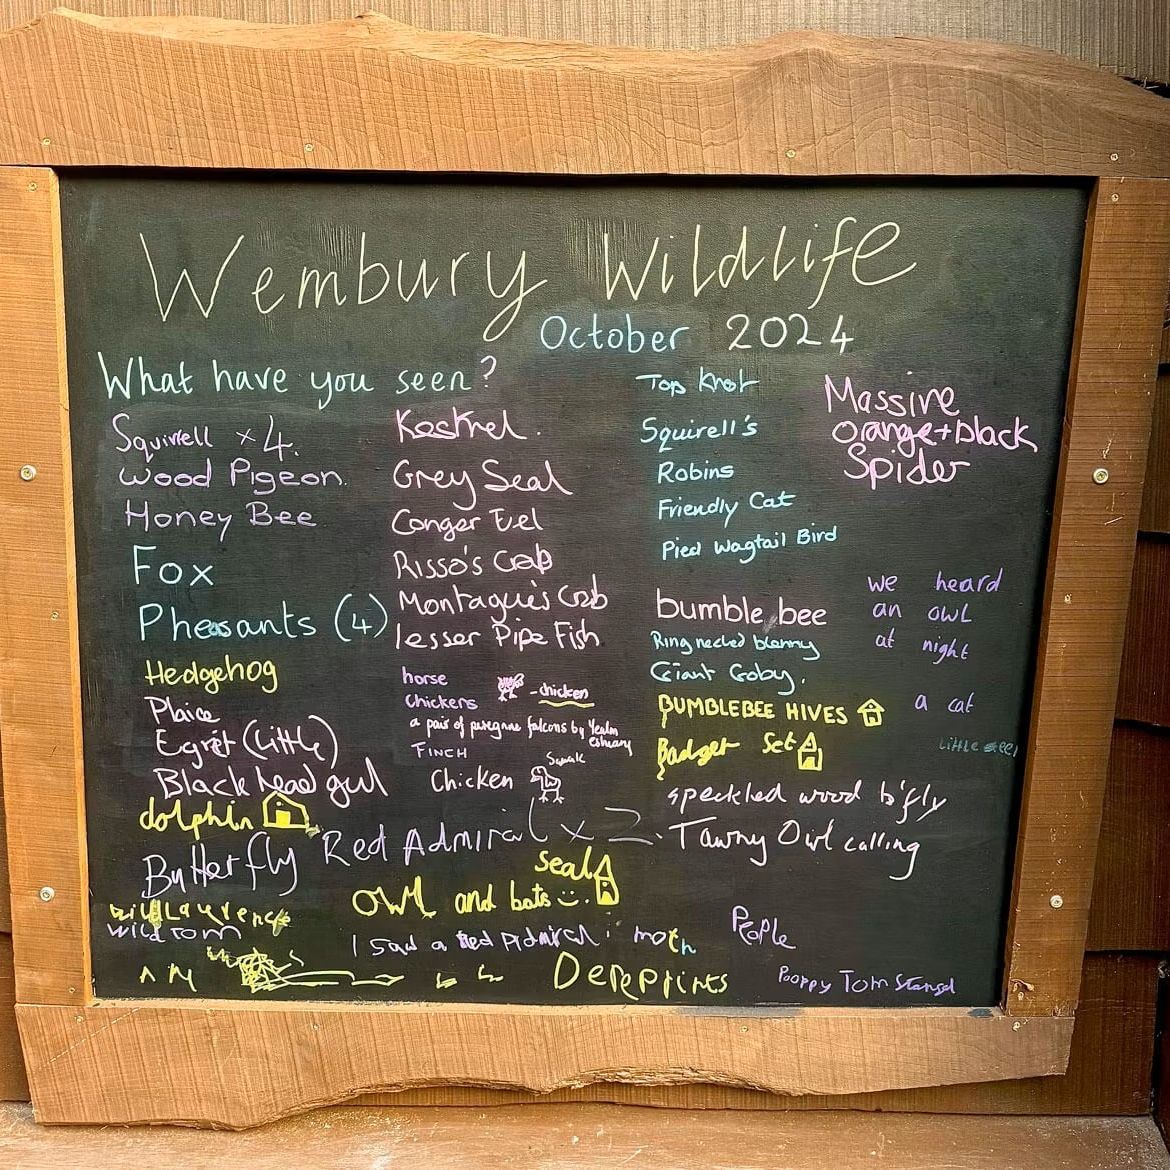 Wembury Wildlife
October 2024
What have you seen?
Squirrell x 4.
Wood Pigeon.
Honey Bee
Fox
Pheasants (4)
Hedgehog
Plaice
Egret (Little)
Black head gul
dolphin
Butterfly Red Admiral x 2.
wild
wild tom
Kestrel.
Grey Seal
Conger Eel
Risso's Crab
Montague's Crab
lesser Pipe Fish
horse
Chickens - chicken
a pair of peregrine falcons by Yealm
estuary
FINCH
Chicken
Seal
Owl and bats :).
I saw a Red Admiral moth
Top Knot
Squirell's
Robins
Friendly Cat
Pied Wagtail Bird
bumble bee
Ring necked blenny
Giant Goby.
BUMBLEBEE HIVES
Badger Set
speckled wood b'fly
Tawny Owl calling
People
Massive
Orange+black
Spider
we heard
an owl
at night
a cat
little eel
Tom